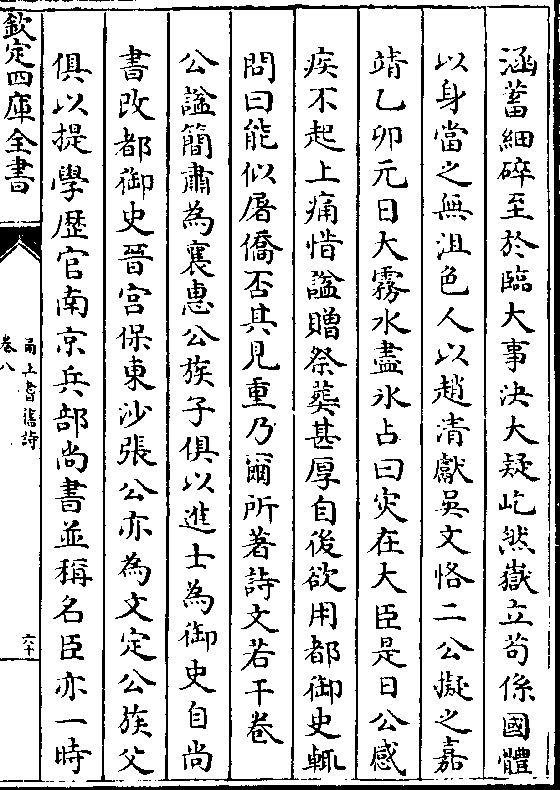 涵蓄細碎至於臨大事決大疑屹然嶽立苟係國體
以身當之無沮色人以趙清獻吳文恪二公擬之嘉
靖乙卯元日大霧水盡氷占曰灾在大臣是日公感
疾不起上痛惜諡贈祭葬甚厚自後欲用都御史輒
問曰能似屠僑否其見重乃爾所著詩文若干卷
公諡簡肅為襄惠公族子俱以進士為御史自尚
書改都御史晉宮保東沙張公亦為文定公族父
俱以提學歴官南京兵部尚書並稱名臣亦一時
欽定四庫全書
甬上耆舊詩
卷八
六十